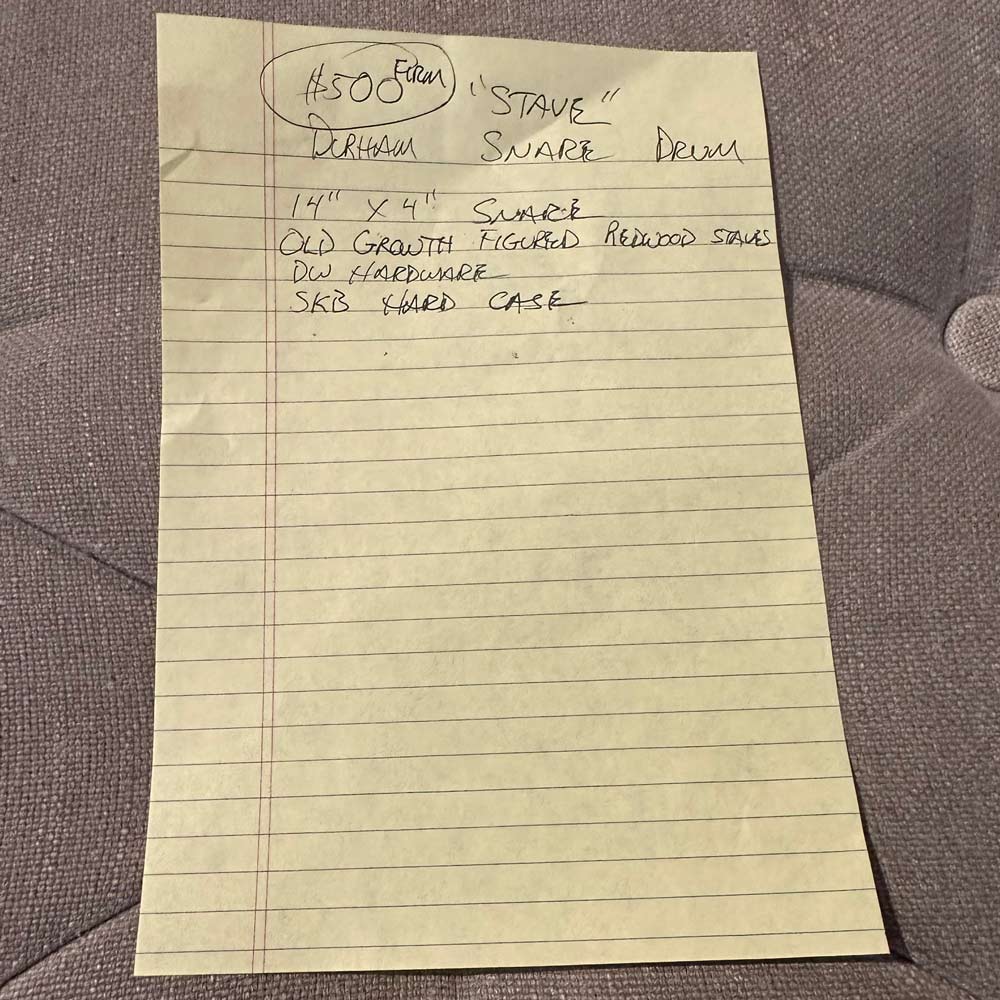 $500 FIRM
"STAVE"
DURHAM SNARE DRUM
14" X 4" SNARE
OLD GROWTH FIGURED REDWOOD STAVES
DW HARDWARE
SKB HARD CASE